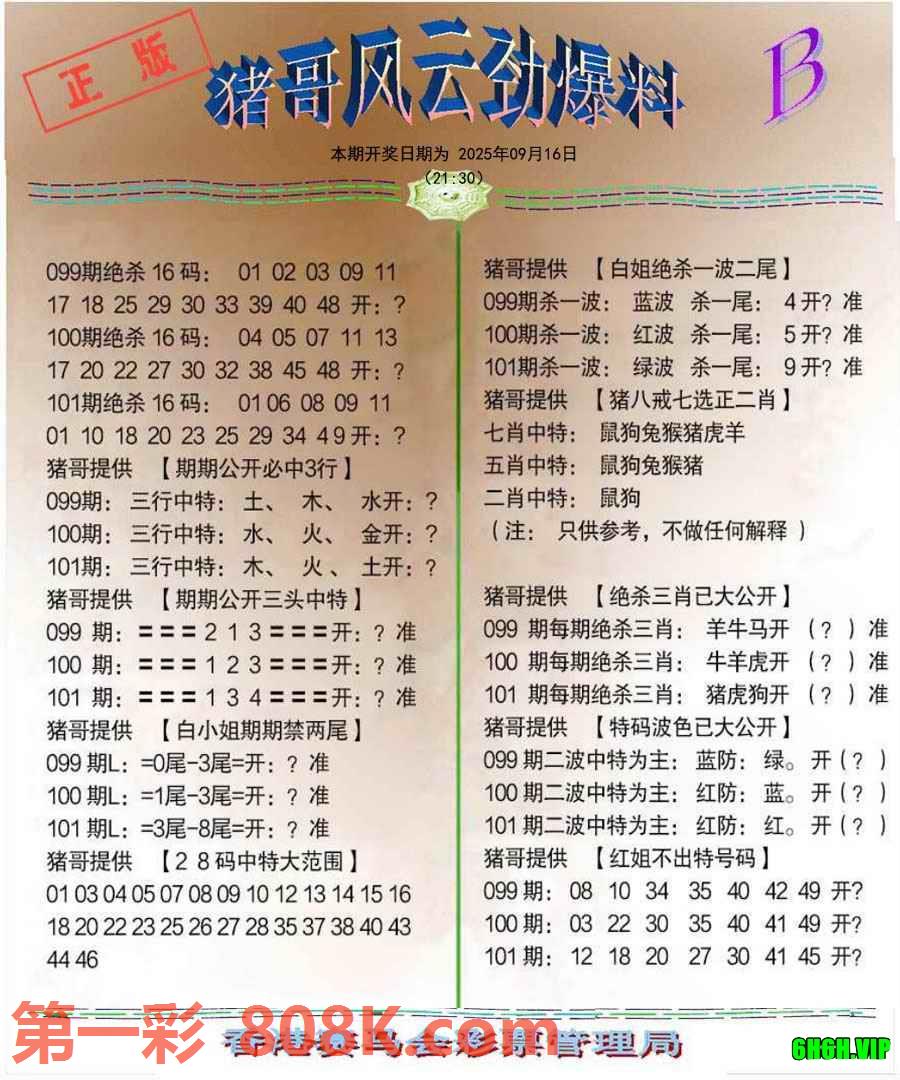 正版
猪哥风云劲爆料
B
本期开奖日期为 2025年09月16日
(21:30)
099期绝杀16码： 01 02 03 09 11
17 18 25 29 30 33 39 40 48 开：?
100期绝杀16码： 04 05 07 11 13
17 20 22 27 30 32 38 45 48 开：?
101期绝杀16码： 01 06 08 09 11
01 10 18 20 23 25 29 34 49 开：?
猪哥提供 【期期公开必中3行】
099期：三行中特：土、 木、 水开：?
100期：三行中特：水、 火、 金开：?
101期：三行中特：木、 火、 土开：?
猪哥提供 【期期公开三头中特】
099 期：===2 1 3===开：? 准
100 期：===1 2 3===开：? 准
101 期：===1 3 4===开：? 准
猪哥提供 【白小姐期期禁两尾】
099期L：=0尾-3尾=开：? 准
100期L：=1尾-3尾=开：? 准
101期L：=3尾-8尾=开：? 准
猪哥提供 【28码中特大范围】
01 03 04 05 07 08 09 10 12 13 14 15 16
18 20 22 23 25 26 27 28 35 37 38 40 43
44 46
猪哥提供 【白姐绝杀一波二尾】
099期杀一波： 蓝波 杀一尾： 4开? 准
100期杀一波： 红波 杀一尾： 5开? 准
101期杀一波： 绿波 杀一尾： 9开? 准
猪哥提供 【猪八戒七选正二肖】
七肖中特： 鼠狗兔猴猪虎羊
五肖中特： 鼠狗兔猴猪
二肖中特： 鼠狗
（注： 只供参考，不做任何解释 ）
猪哥提供 【绝杀三肖已大公开】
099 期每期绝杀三肖： 羊牛马开 （? ）准
100 期每期绝杀三肖： 牛羊虎开 （? ）准
101 期每期绝杀三肖： 猪虎狗开 （? ）准
猪哥提供 【特码波色已大公开】
099期二波中特为主： 蓝防： 绿。 开(? )
100期二波中特为主： 红防： 蓝。 开(? )
101期二波中特为主： 红防： 红。 开(? )
猪哥提供 【红姐不出特号码】
099期： 08 10 34 35 40 42 49 开?
100期： 03 22 30 35 40 41 49 开?
101期： 12 18 20 27 30 41 45 开?
第一彩 808K.com
香港赛马会彩票管理局
6H6H.VIP